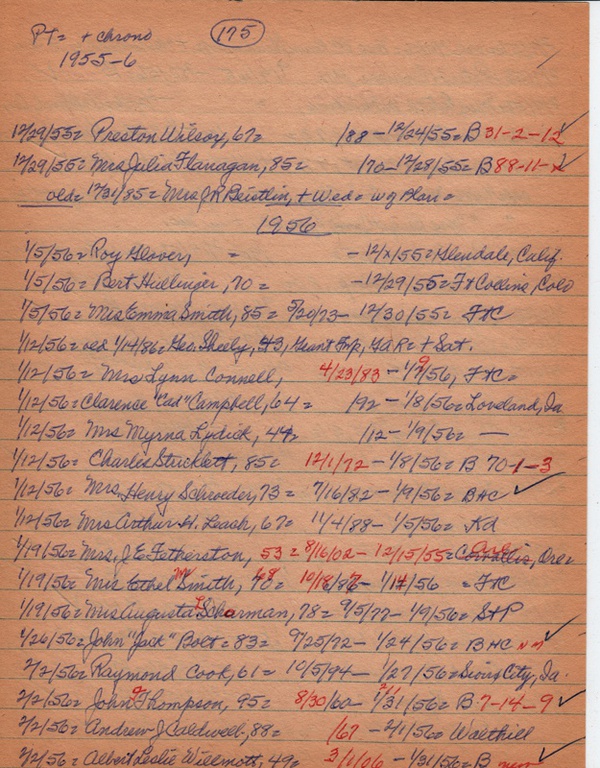 PT= + chrono (175)
1955-6
12/29/55= Preston Wilson, 67= /88 - 12/24/55= B 31-2-12 ✓
12/29/55= Mrs Julia Flanagan, 85= /70 - 12/28/55= B 88-11-x
old= 12/31/85= Mrs J R Beistlin, + Wed= w g Plan=
1956
1/5/56= Roy Glover, = - 12/x/55= Glendale, Calif.
1/5/56= Bert Hullinger, 70= - 12/29/55= Ft Collins, Colo
1/5/56= Mrs Emma Smith, 85= 5/20/73 - 12/30/55= FtC
1/12/56= old 1/14/86= Geo. Sheely, 43, Grant Twp, GAR= + Sat.
1/12/56= Mrs Lynn Connell, 4/23/83 - 1/9/56, FtC=
1/12/56= Clarence "Cad" Campbell, 64= /92 - 1/8/56= Loveland, Ia
1/12/56= Mrs Myrna Lydick, 44= /12 - 1/9/56= —
1/12/56= Charles Stricklett, 85= 12/1/72 - 1/8/56= B 70-1-3
1/12/56= Mrs Henry Schroeder, 73= 7/16/82 - 1/9/56= BHC ✓
1/12/56= Mrs Arthur H. Leach, 67= 11/4/88 - 1/5/56= Kd
1/19/56= Mrs, J E Fetherston, 53= 8/16/02 - 12/15/55= Corvallis, Ore=
1/19/56= Mrs Ethel Smith, 70= 68 10/18/87 - 1/14/56 = FtC
1/19/56= Mrs Augusta L Scharman, 78= 9/5/77 - 1/9/56= StP
1/26/56= John "Jack" Bolt= 83= 9/25/72 - 1/24/56= BHC nm ✓
2/2/56= Raymond Cook, 61= 10/5/94 - 1/27/56= Sioux City, Ia.
2/2/56= John Thompson, 95= 8/30/60 - 1/31/56= B 7-14-9 ✓
2/2/56= Andrew J Caldwell, 88= /67 - 2/1/56= Walthill
2/2/56= Albert Leslie Willmott, 49= 3/1/06 - 1/31/56= B new ✓